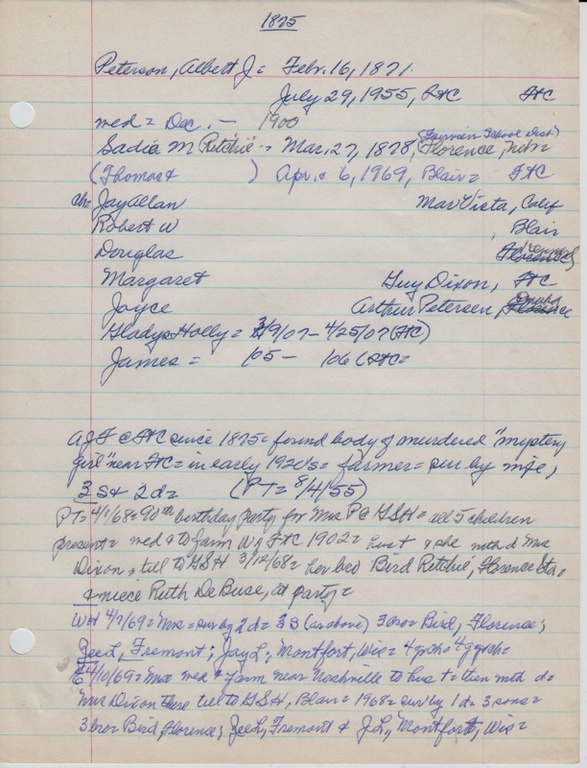 1875
Peterson, Albert J = Febr. 16, 1871
July 29, 1955, FtC FtC
med = Dec. — 1900
(Fairview School Dist.)
Sadie M Ritchie = Mar. 27, 1878, Florence, Neb =
(Thomas + ) Apr. 6, 1969, Blair = FtC
Ch = Jay Allan Mar Vista, Calif
Robert W , Blair
Douglas
Margaret Guy Dixon, FtC
Joyce Arthur Petersen, Omaha
Gladys Holly = 3/9/07 – 4/25/07 (FtC)
James = /05 – /06 (FtC =
AJF @ FtC since 1875 = found body of murdered "mystery
girl" near FtC = in early 1920's = farmer = sur by wife,
3 s + 2 d = (PT = 8/4/55)
PT = 4/4/68 = 90th birthday party for Mrs P @ GSH = all 5 children
present = med + to farm W FtC 1902 = hus t + she with d Mrs
Dixon, till to GSH 3/12/68 = her bro Bird Ritchie, Florence Sta =
+ niece Ruth De Buse, at party =
WH 4/7/69 = Mrs = sur by 2 d = 3 s (as above) 3 bros = Bird, Florence;
Zee L, Fremont; Jay L, Montfort, Wis = 4 grch = 4 ggrch =
4/10/69 = Mrs med + farm near Nashville to hus t = then with d =
Mrs Dixon till to GSH, Blair = 1968 = sur by 1 d = 3 sons =
3 bros Bird, Florence; Zee L, Fremont + J L, Montfort, Wis =